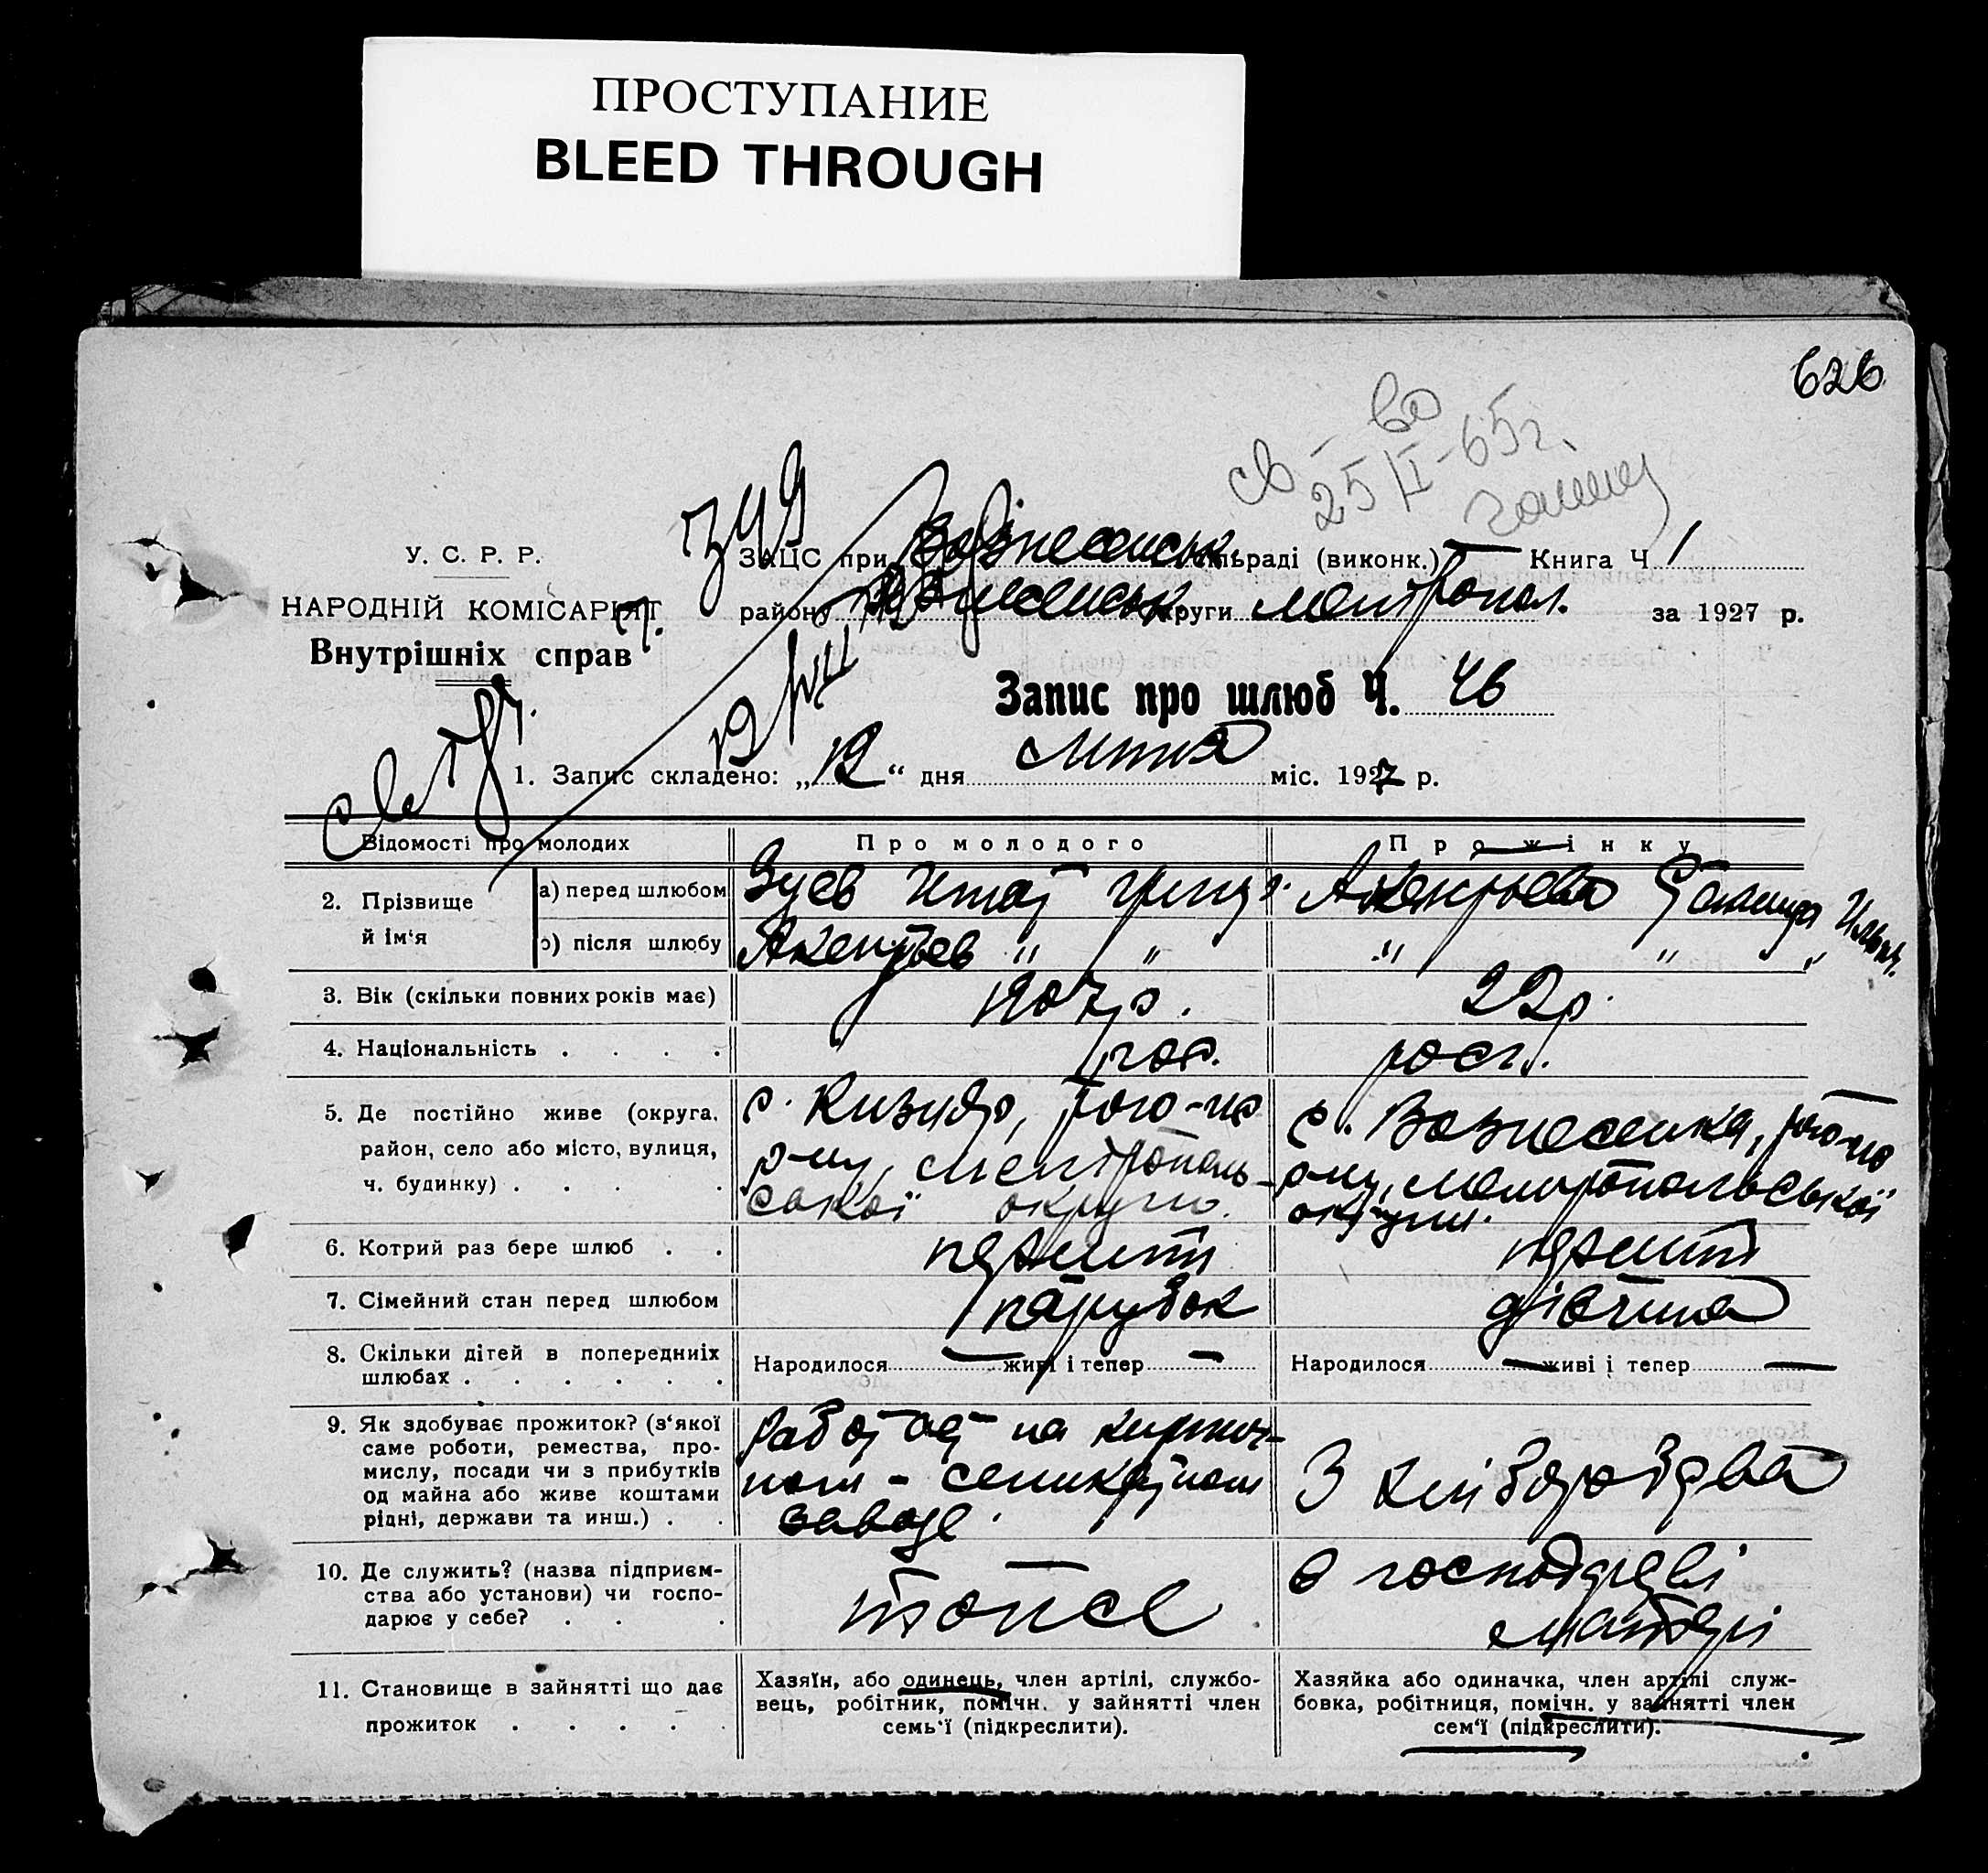 ПРОСТУПАНИЕ
BLEED THROUGH
626
св-во
25 II-65г.
349
У. С. Р. Р.
НАРОДНІЙ КОМІСАРІЯТ
Внутрішніх справ
ЗАЦС при Вознесенськ. сільраді (виконк.) — Книга Ч 1
району Вознесенськ округи Мелітропол. за 1927 р.
Запис про шлюб Ч. 46
1. Запис складено: „12“ дня липня міс. 1927 р.
Відомості про молодих
Про молодого
Про жінку
2. Прізвище й ім‘я
а) перед шлюбом
Зуєв
Акентьева
б) після шлюбу
Акентьев " "
" " "
3. Вік (скільки повних років має)
1907 р.
22 р.
4. Національність . . . .
рос.
рос.
5. Де постійно живе (округа, район, село або місто, вулиця, ч. будинку) . . . .
с. Кизияр, того-ж
р-ну, Мелітрополь-
ської округи.
с. Вознесенка, того-ж
р-ну, Мелітропольської
округи.
6. Котрий раз бере шлюб . .
перший
перший
7. Сімейний стан перед шлюбом
парубок
дівчина
8. Скільки дітей в попередніх шлюбах . . . . . .
Народилося — живі і тепер —
Народилося — живі і тепер —
9. Як здобуває прожиток? (з‘якої
саме роботи, ремества, про-
мислу, посади чи з прибутків
од майна або живе коштами
рідні, держави та инш.) . .
Работает на кирпич-
ном - силикатном
заводе.
З хліборобства
10. Де служить? (назва підприєм-
ства або установи) чи госпо-
дарює у себе? . . .
тоже
в господарстві
матері
11. Становище в зайнятті що дає
прожиток . . . . .
Хазяїн, або одинець, член артілі, службо-
вець, робітник, помічн. у зайнятті член
семь‘ї (підкреслити).
Хазяйка або одиначка, член артілі служ-
бовка, робітниця, помічн. у зайнятті член
сем‘ї (підкреслити).